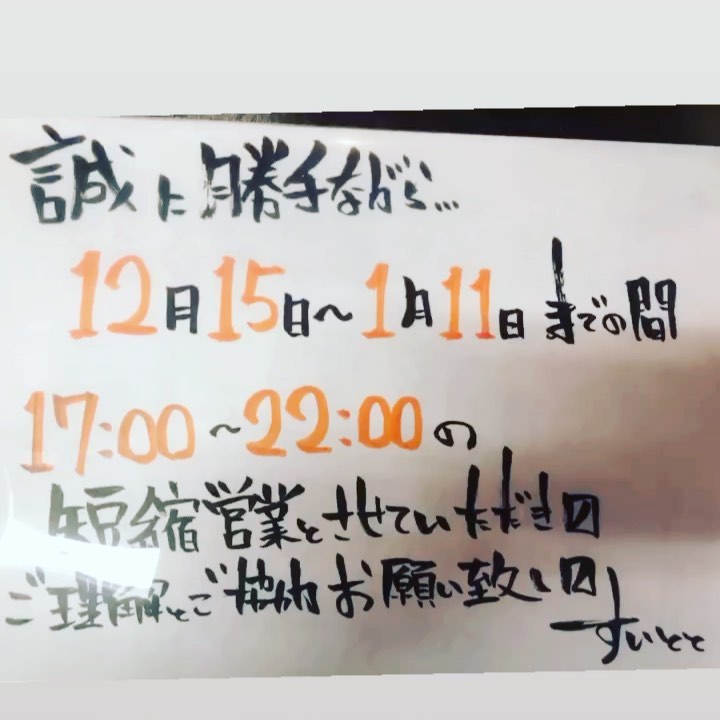 誠に勝手ながら...
12月15日〜1月11日までの間
17:00〜22:00の
短縮営業とさせていただき〼
ご理解とご協力お願い致し〼
すいとと